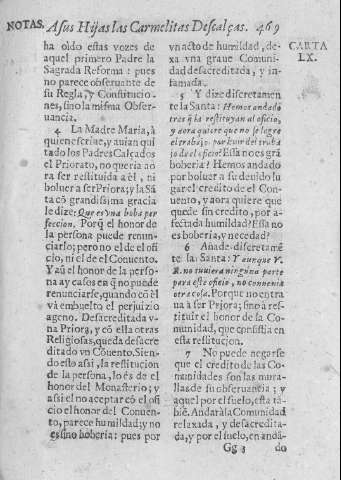 NOTAS. A sus Hijas las Carmelitas Descalças. 469
CARTA
LX.
ha oido estas vozes de
aquel primero Padre la
Sagrada Reforma: pues
no parece obseruante de
su Regla, y Constitucio-
nes, sino la misma Obser-
uancia.
4 La Madre Maria, à
quien escriue, y auian qui
tado los Padres Calçados
el Priorato, no queria ao-
ra ser restituida à èl, ni
boluer a ser Priora; y la Sã
ta cõ grandissima gracia
le dize: Que es vna boba per
feccion. Porq̃ el honor de
la persona puede renun-
ciarlo; pero no el de el ofi-
cio, ni el de el Conuento.
Y aũ el honor de la perso-
na ay casos en q̃ no puede
renunciarse, quando cõ èl
và embuelto el perjuizio
ageno. Desacreditada v-
na Priora, y cõ ella otras
Religiosas, queda desacre
ditado vn Cõuento. Sien-
do esto assi, la restitucion
de la persona, lo es de el
honor del Monasterio; y
assi el no aceptar cõ el ofi
cio el honor del Conuen-
to, parece humildad; y no
es sino boberia: pues por
vn acto de humildad, de-
xa vna graue Comuni-
dad desacreditada, y in-
famada.
5 Y dize discretamen
te la Santa: Hemos andado
tres q̃ la restituyan al oficio,
y aora quiere que no se logre
el trabajo, por huir del traba
jo de el oficio? Esta no es grã
boberia? Hemos andado
por boluer a su deuido lu
gar el credito de el Con-
uento, y aora quiere que
quede sin credito, por a-
fectada humildad? Essa no
es boberia, y necedad?
6 Añade discretamẽ
te la Santa: Y aunque V.
R. no tuviera ninguna parte
para este oficio, no conuenia
otra cosa. Porque no entra
ua à ser Priora; sino à res-
tituir el honor de la Co-
munidad, que consistia en
esta restitucion.
7 No puede negarse
que el credito de las Co-
munidades son las mura-
llas de su obseruancia; y
aquel por el suelo, esta tã-
biẽ. Andarà la Comunidad
relaxada, y desacredita-
da, y por el suelo, en andã-
Gg 3 do